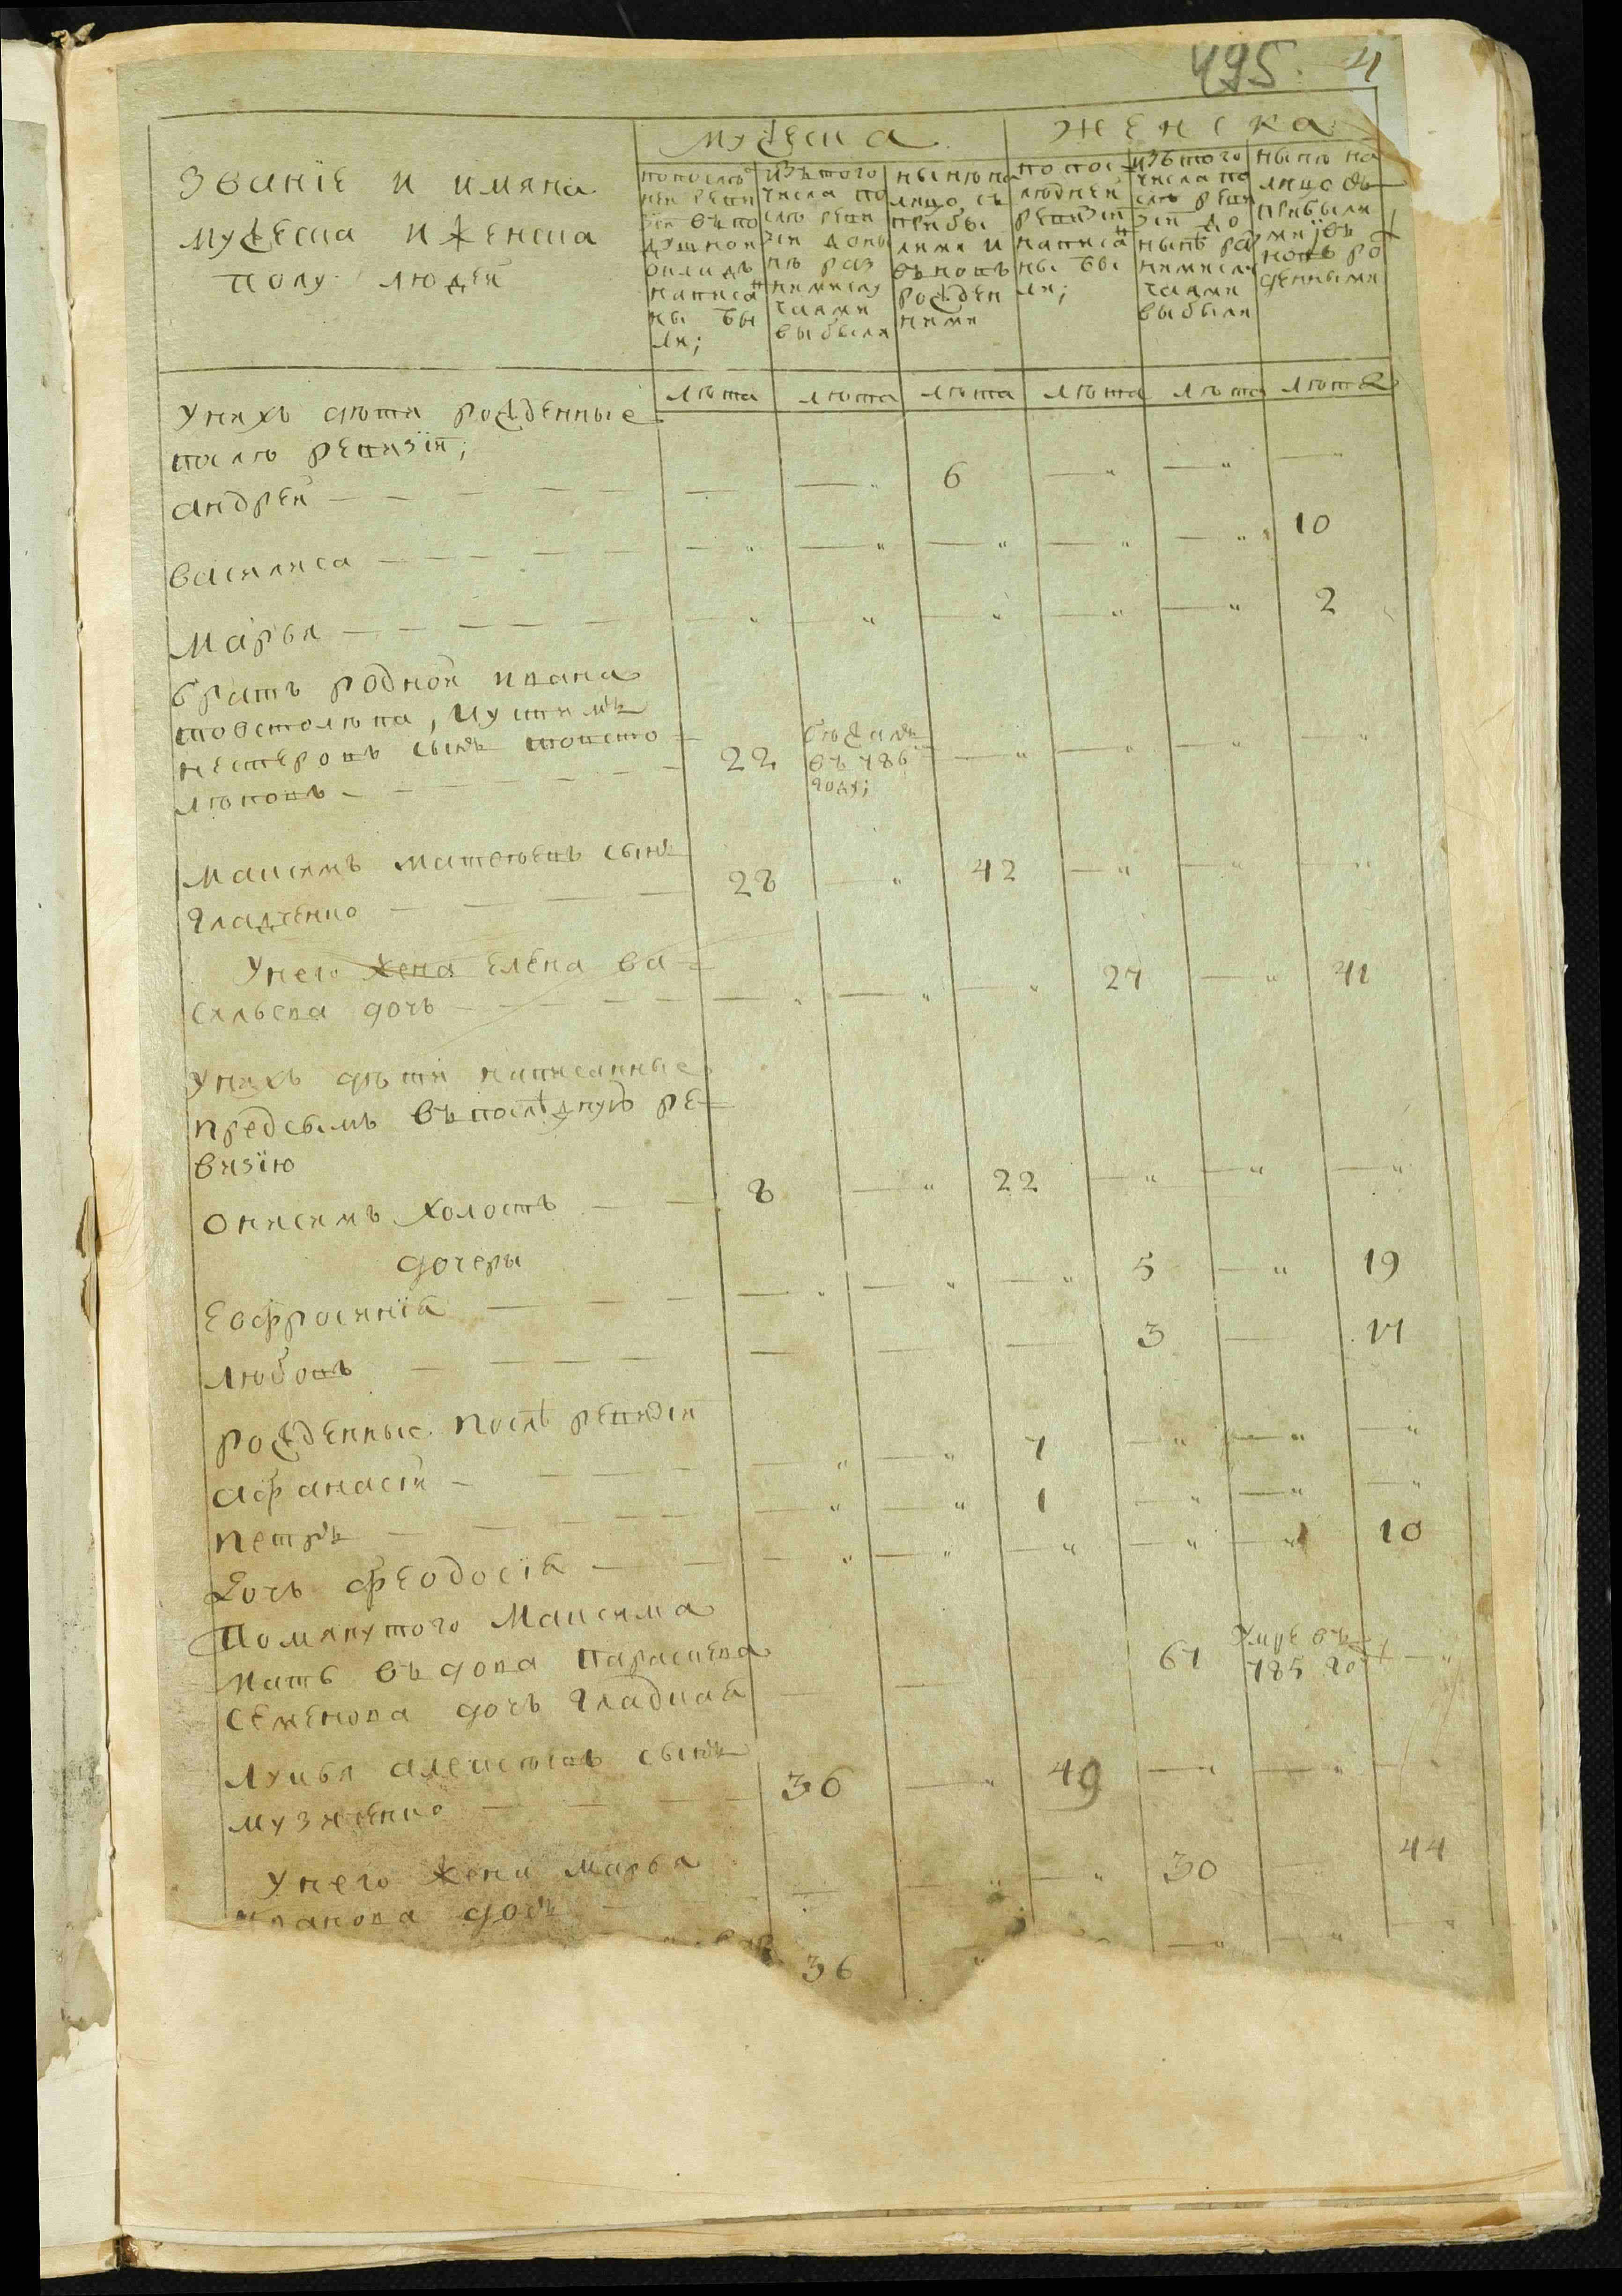 495. 4
мужеска женска
Званіе и имяна
мужеска и женска
полу людей
по послѣд
ней реви
зіи въ по
душной
окладъ
написа
ны бы
ли;
изъ того
числа по
слѣ реви
зіи до ны
нѣ раз
ними слу
чаями
выбыли
нынѣ на
лицо съ
прибы
лими и
въновь
рожден
ними
по пос
лѣдней
ревизіи
написа
ны бы
ли;
изъ того
числа по
слѣ реви
зіи до
нынѣ ра
ними слу
чаями
выбыли
нынѣ на
лицо съ
прибыли
ми и въ
новь ро
жденными
лѣта лѣта лѣта лѣта лѣта лѣта
У нихъ дѣти рожденные
послѣ ревизіи;
андрей — — — — — — — 6 — — —
василиса — — — — — — — — — — 10
Марья — — — — — — — — — — 2
братъ родной ивана
товстолѣпа, Иустимъ
нестеровъ сынъ товсто
лѣповъ — — — — 22 бѣжалъ въ 786 году; — — — —
Максимъ матвѣевъ сынъ
гладченко — — — 28 — 42 — — —
У него жена Елена ва
сильева дочь — — — — — — — 27 — 41
У нихъ дѣти написанные
предсымъ въ послѣдную ре
визїю
онисимъ холостъ — — 8 — 22 — — —
дочеры
Еофросинїа — — — — — — 5 — 19
любовь — — — — — — — 3 — 17
рожденные послѣ ревизіи
афанасій — — — — — — 7 — — —
петръ — — — — — — — 1 — — —
Дочь феодосїа — — — — — — — — 10
Помянутого Максима
мать въдова параскева
семенова дочь гладкаа — — 67 умре въ 785 го — —
Лукья алексѣевъ сынъ
музиченко — — — 36 — 49 — — —
У него жена марья
ивановна дочь — — — — 30 — 44
36 —